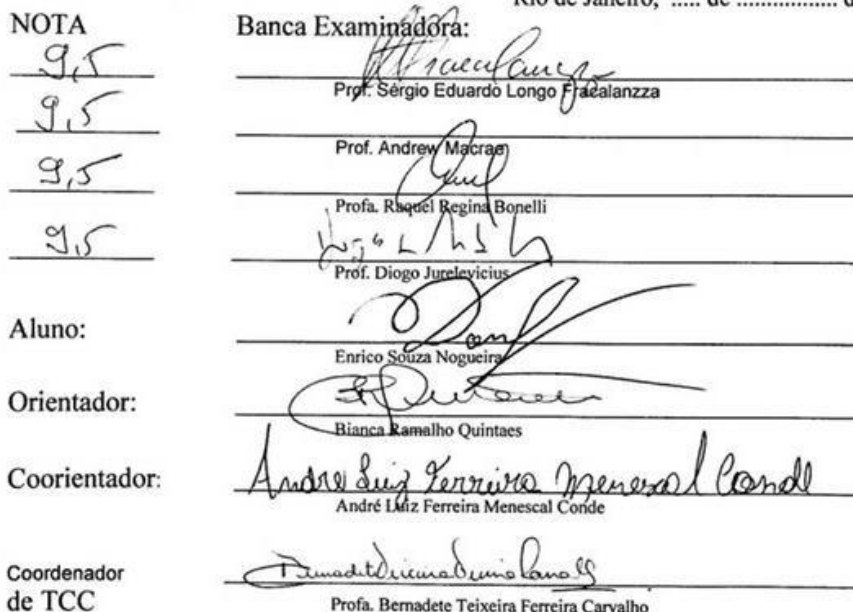 Rio de Janeiro, ..... de .................. d
NOTA Banca Examinadora:
9,5
Prof. Sérgio Eduardo Longo Fracalanzza
9,5
Prof. Andrew Macrae
9,5
Profa. Raquel Regina Bonelli
9,5
Prof. Diogo Jurelevicius
Aluno:
Enrico Souza Nogueira
Orientador:
Bianca Ramalho Quintaes
Coorientador: Andre Luiz Ferreira Menescal Conde
André Luiz Ferreira Menescal Conde
Coordenador
de TCC
Profa. Bernadete Teixeira Ferreira Carvalho